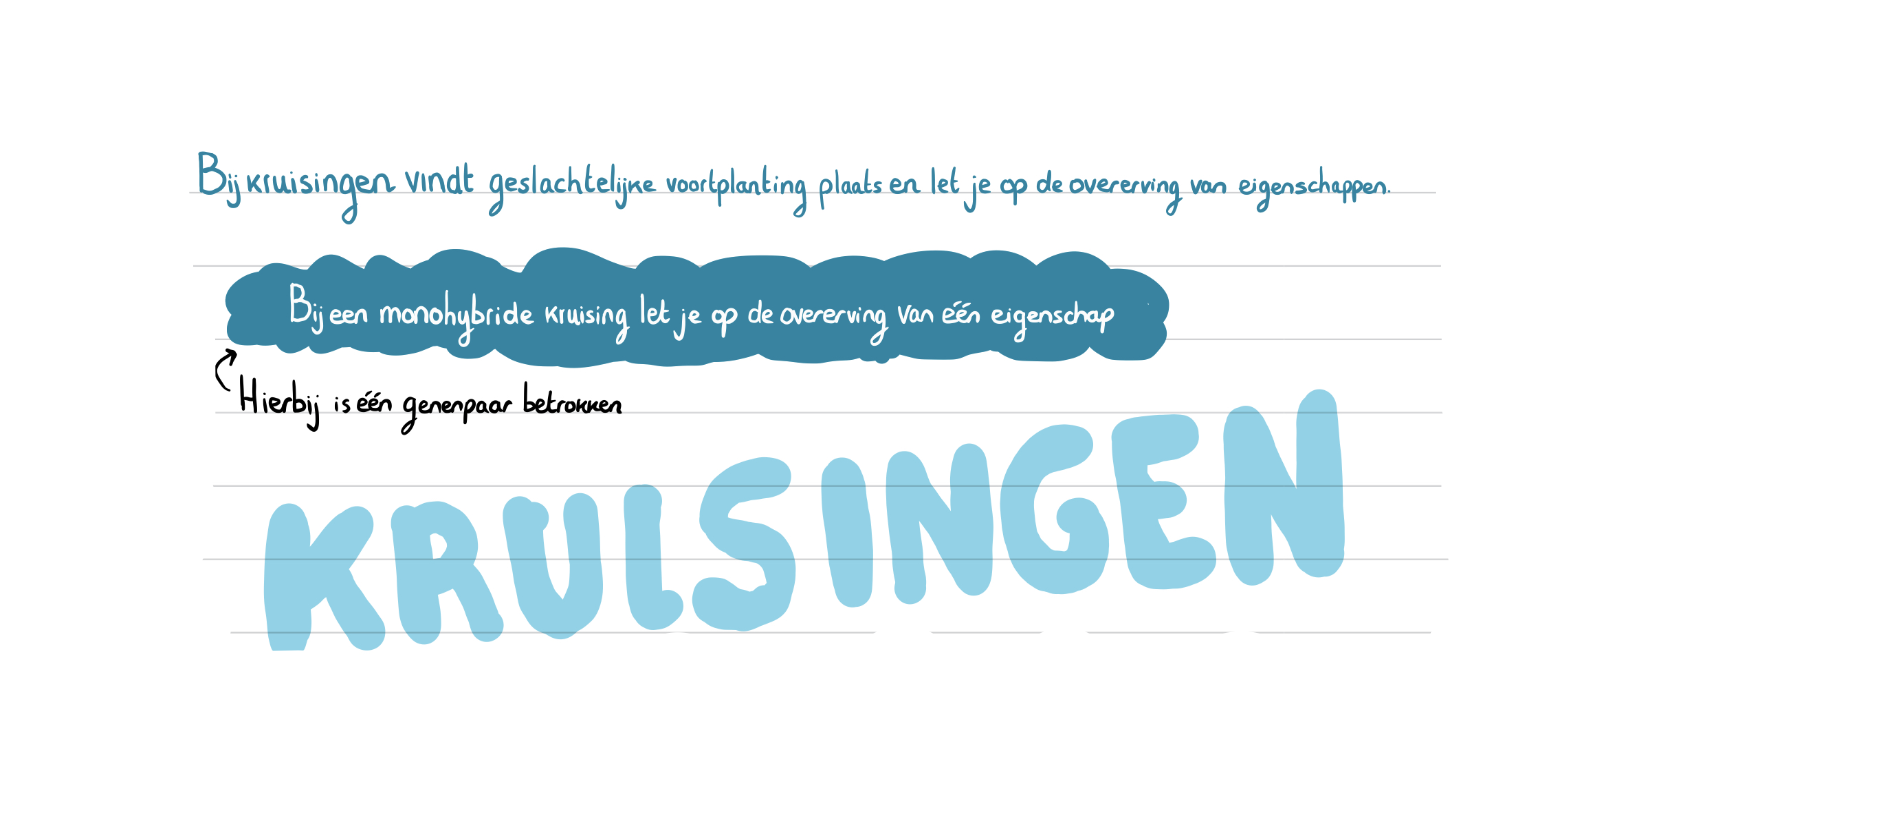 Bij kruisingen vindt geslachtelijke voortplanting plaats en let je op de overerving van eigenschappen.
Bij een monohybride kruising let je op de overerving van één eigenschap
Hierbij is één genenpaar betrokken
KRUISINGEN